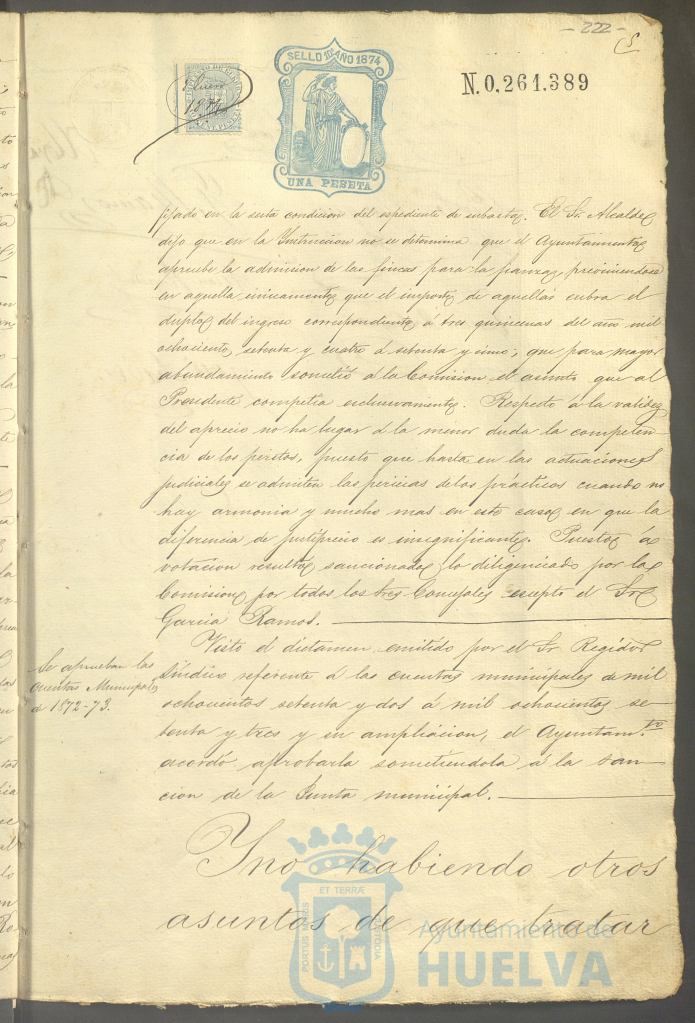 - 222 -
SELLO 10º AÑO 1874
N. 0.261.389
Enero
1874
UNA PESETA
fijado en la sesta condicion del espediente de subasta. El Sr. Alcalde
dijo que en la Instruccion no se determina que el Ayuntamiento
apruebe la admision de las fincas para la fianza, previniendose
en aquella únicamente que el importe de aquellas cubra el
duplo del ingreso correspondiente á tres quincenas del año mil
ochocientos setenta y cuatro á setenta y cinco; que para mayor
abundamiento sometió á la Comision el asunto que al
Presidente competia esclusivamente. Respecto á la validez
del aprecio no ha lugar á la menor duda la competen
cia de los peritos, puesto que hasta en las actuaciones
judiciales se admiten las pericias de los prácticos cuando no
hay armonia y mucho mas en este caso en que la
diferencia de justiprecio es insignificante. Puesto á
votacion resultó sancionado lo diligenciado por la
Comision por todos los tres Concejales escepto el Sr
Garcia Ramos.
Se aprueban las
cuentas Municipales
de 1872-73.
Visto el dictamen emitido por el Sr. Regidor
Síndico referente á las cuentas municipales de mil
ochocientos setenta y dos á mil ochocientos se
tenta y tres y su ampliacion, el Ayuntam.to
acordó aprobarla sometiéndola á la san—
cion de la Junta municipal.
Y no habiendo otros
asuntos de que tratar
PORTUS MARIS
ET TERRÆ
CUSTODIA
Ayuntamiento de
HUELVA